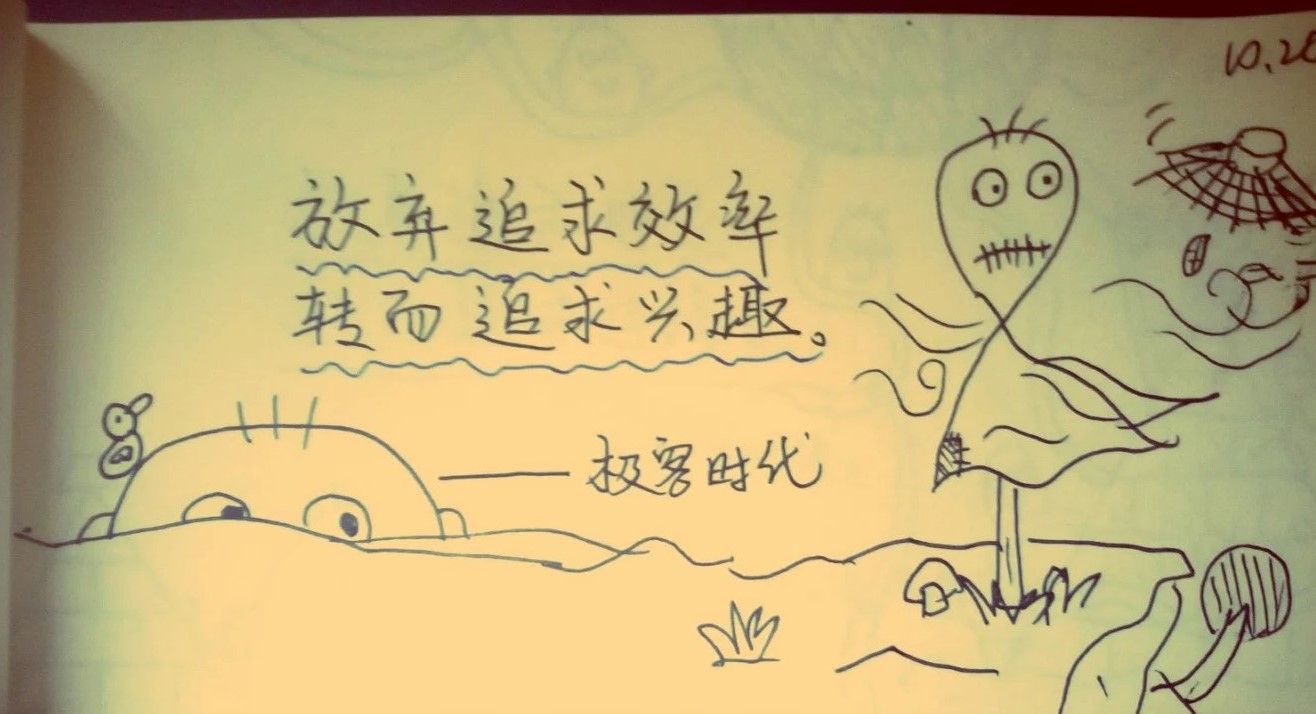 放弃追求效率
转而追求兴趣。
——极客时代